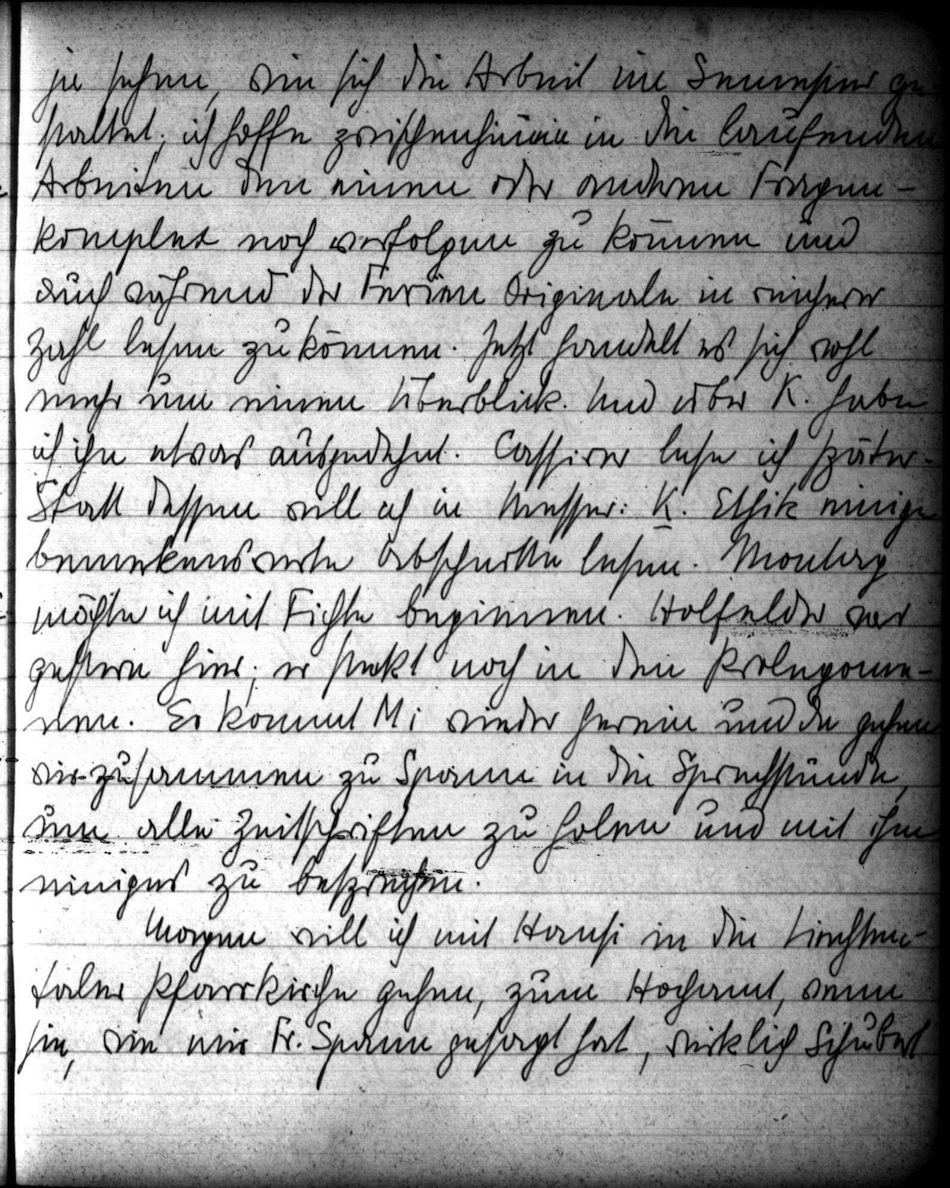 zu sehen, wie sich die Arbeit im Seminar ge-
staltet; ich hoffe zwischenhinein in den laufenden
Arbeiten den einen oder anderen Fragen-
komplex noch verfolgen zu können und
auch während der Ferien Originale in reicherer
Zahl lesen zu können. Jetzt handelt es sich wohl
mehr um einen Überblick. Und über K. habe
ich ihn etwas ausgedehnt. Cassirer lese ich später.
Statt dessen will ich in Messer: K. Ethik einige
bemerkenswerte Abschnitte lesen. Montag
möchte ich mit Fichte beginnen. Holfelder war
gestern hier; er steckt noch in den Prolegome-
nen. Er kommt Mi wieder herein und da gehen
wir zusammen zu Spann in die Sprechstunde,
um alle Zeitschriften zu holen und mit ihm
einiges zu besprechen.
Morgen will ich mit Hansi in die Liechten-
taler Pfarrkirche gehen, zum Hochamt, wenn
sie, wie mir Fr. Spann gesagt hat, wirklich Schubert